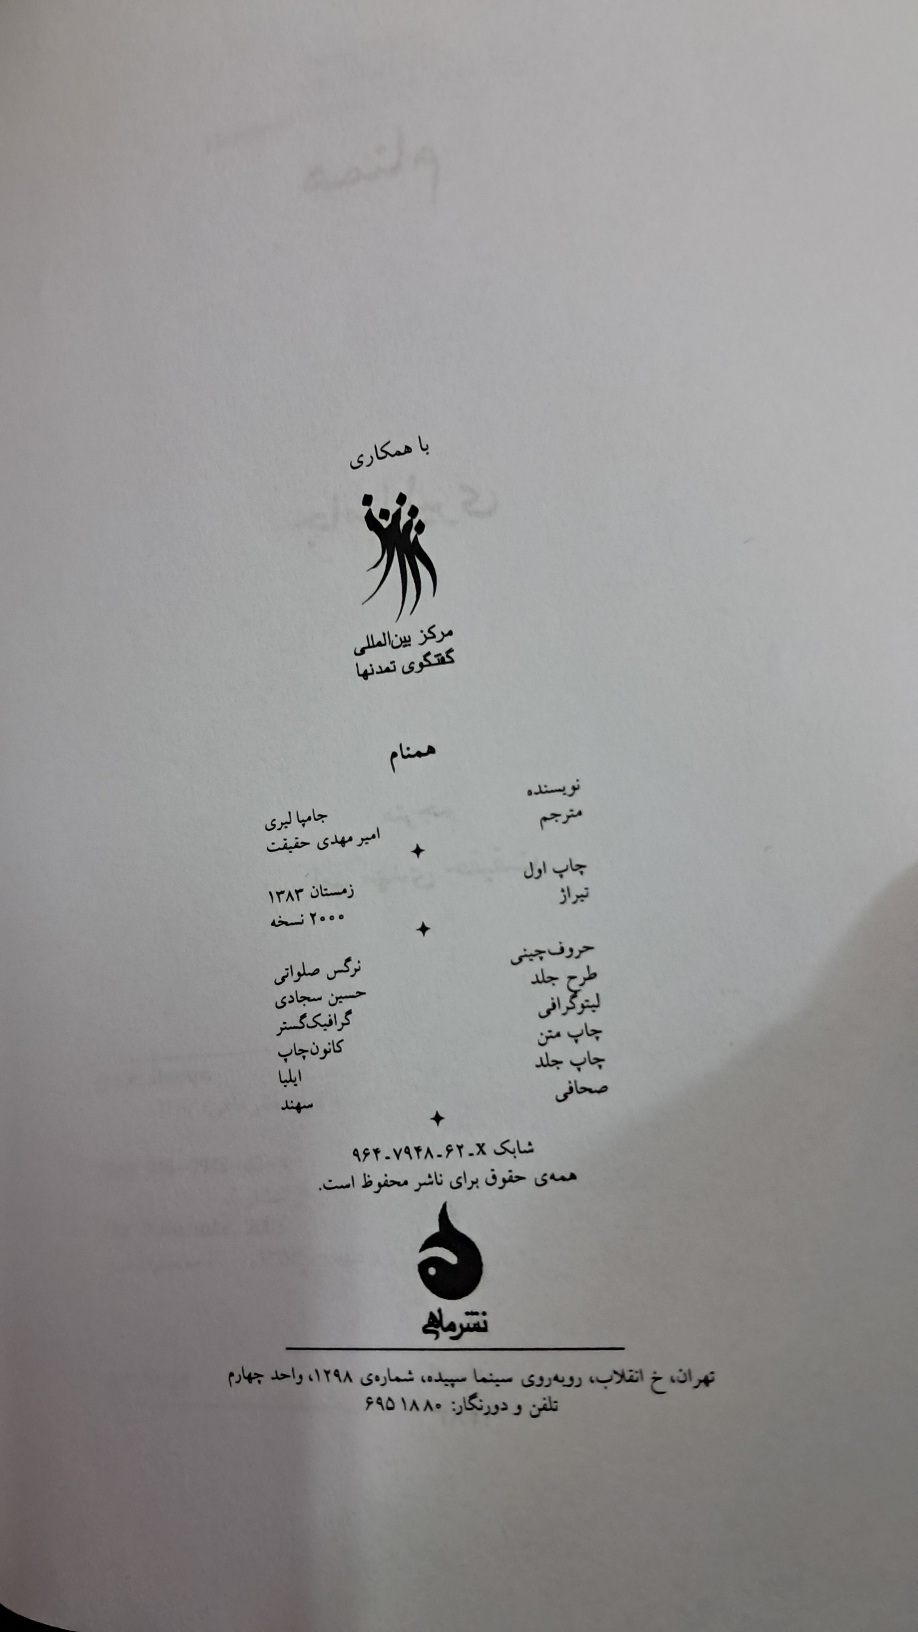 با همکاری
مرکز بین‌المللی
گفتگوی تمدنها
همنام
نویسنده جامپا لیری
مترجم امیر مهدی حقیقت
چاپ اول زمستان ۱۳۸۳
تیراژ ۲۰۰۰ نسخه
حروف‌چینی نرگس صلواتی
طرح جلد حسین سجادی
لیتوگرافی گرافیک‌گستر
چاپ متن کانون‌چاپ
چاپ جلد ایلیا
صحافی سهند
شابک ۹۶۴-۷۹۴۸-۶۲-X
همه‌ی حقوق برای ناشر محفوظ است.
نشرماهی
تهران، خ انقلاب، روبه‌روی سینما سپیده، شماره‌ی ۱۲۹۸، واحد چهارم
تلفن و دورنگار: ۶۹۵۱۸۸۰